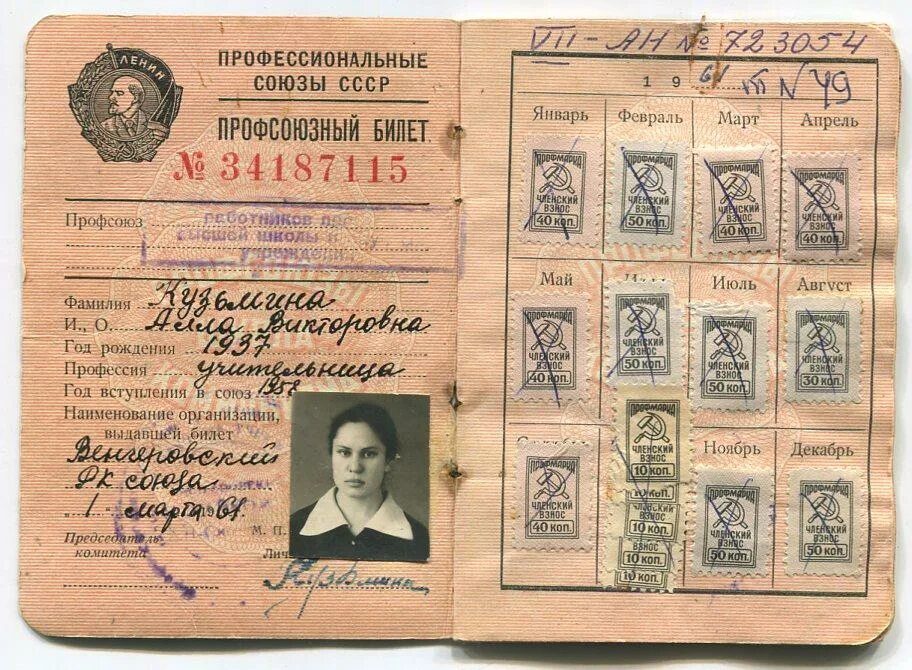 ЛЕНИН
ПРОФЕССИОНАЛЬНЫЕ
СОЮЗЫ СССР
ПРОФСОЮЗНЫЙ БИЛЕТ
№ 34187115
Профсоюз
работников
высшей школы и
учрежден
Фамилия Кузьмина
И., О. Алла Викторовна
Год рождения 1937
Профессия учительница
Год вступления в союз
Наименование организации,
выдавшей билет
Венгеровский
РК союза
„1" марта 1961
Председатель
комитета
М. П.
Лич
Кузьмина
VII-АН № 723054
1961
№ 49
Январь Февраль Март Апрель
ПРОФМАРКА ПРОФМАРКА ПРОФМАРКА ПРОФМАРКА
ЧЛЕНСКИЙ ЧЛЕНСКИЙ ЧЛЕНСКИЙ ЧЛЕНСКИЙ
ВЗНОС ВЗНОС ВЗНОС ВЗНОС
40 коп. 50 коп. 40 коп. 40 коп.
Май Июль Август
ПРОФМАРКА ПРОФМАРКА ПРОФМАРКА ПРОФМАРКА
ЧЛЕНСКИЙ ЧЛЕНСКИЙ ЧЛЕНСКИЙ ЧЛЕНСКИЙ
ВЗНОС ВЗНОС ВЗНОС ВЗНОС
40 коп. 50 коп. 50 коп. 30 коп.
Ноябрь Декабрь
ПРОФМАРКА ПРОФМАРКА ПРОФМАРКА ПРОФМАРКА
ЧЛЕНСКИЙ ЧЛЕНСКИЙ ЧЛЕНСКИЙ ЧЛЕНСКИЙ
ВЗНОС ВЗНОС ВЗНОС ВЗНОС
40 коп. 10 коп. 50 коп. 50 коп.
10 коп.
ЧЛЕНСКИЙ
ВЗНОС
10 коп.
ВЗНОС
10 коп.
10 коп.